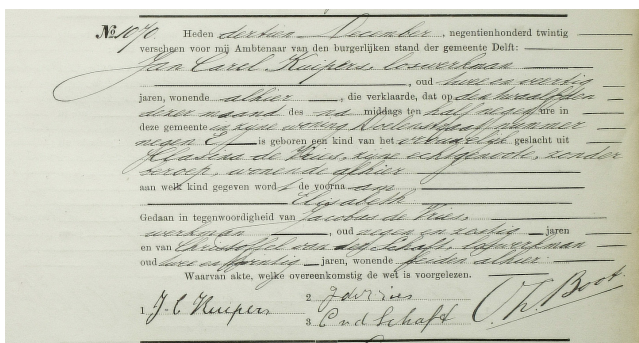 No. 1070. Heden dertien December, negentienhonderd twintig
verscheen voor mij Ambtenaar van den burgerlijken stand der gemeente Delft:
Jan Carel Kuipers, loswerkman
, oud twee en veertig
jaren, wonende alhier, die verklaarde, dat op den twaalfden
dezer maand des na middags ten half negen ure in
deze gemeente in zijne woning Molenstraat nummer
negen is geboren een kind van het vrouwelijk geslacht uit
de Vries, zijne echtgenoote, zonder
beroep, wonende alhier
aan welk kind gegeven word t de voorna am
Elisabeth
Gedaan in tegenwoordigheid van Jacobus de Vries,
werkman, oud negen en zestig jaren
en van Christoffel van der Schaft, loswerkman
oud twee en veertig jaren, wonende beiden alhier.
Waarvan akte, welke overeenkomstig de wet is voorgelezen.
1 J. C Kuipers
2 J d Vries
3 C v d Schaft
Th. Boot.